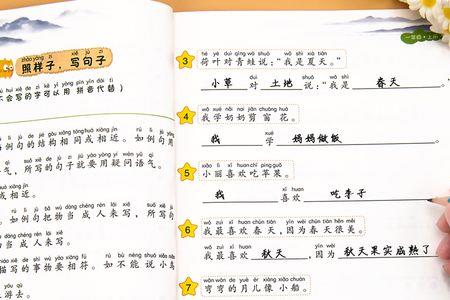 一年级·上册
zhào yàng zi xiě jù zi
照样子，写句子
huì xiě de zì kě yǐ yòng pīn yīn dài tì
会写的字可以用 拼音代替)
句的结构相同或相近。如例句用
气，所写的句子就要用疑问语气。
相近。
如例句把物当 成人来写，所写
当 成人来写。
描写的事物要相符。如不能说小
3
hé yè duì qīng wā shuō wǒ shì xià tiān
荷叶对青蛙说："我是夏天。"
小草 对 土地 说："我是 春天
4
wǒ xué nǎi nai jiǎn chuāng huā
我学奶奶剪 窗 花。
xué
我 学 妈妈做饭 。
5
xiǎo lì xǐ huan chī píng guǒ
小丽喜欢吃苹果。
xǐ huan
我 喜欢 吃李子
6
wǒ zuì xǐ huan chūn tiān yīn wèi chūn tiān hěn měi
我最喜欢 春天，因为春天很美。
wǒ zuì xǐ huan yīn wèi
我最喜欢 秋天 ，因为 秋天果实成熟了
7
wān wān de yuè er xiàng xiǎo chuán
弯弯的月儿像 小船。